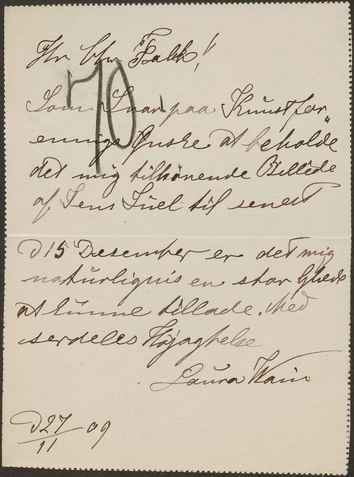 Hr. Chr. Falck!
70
Som Svar paa Kunstfor
enings Ønske at beholde
det mig tilhörende Billede
af Jens Juel til senest
D 15 Desember er det mig
naturligvis en stor Glæde
at kunne tillade. Med
serdeles Højagtelse
Laura
D 27/11 09